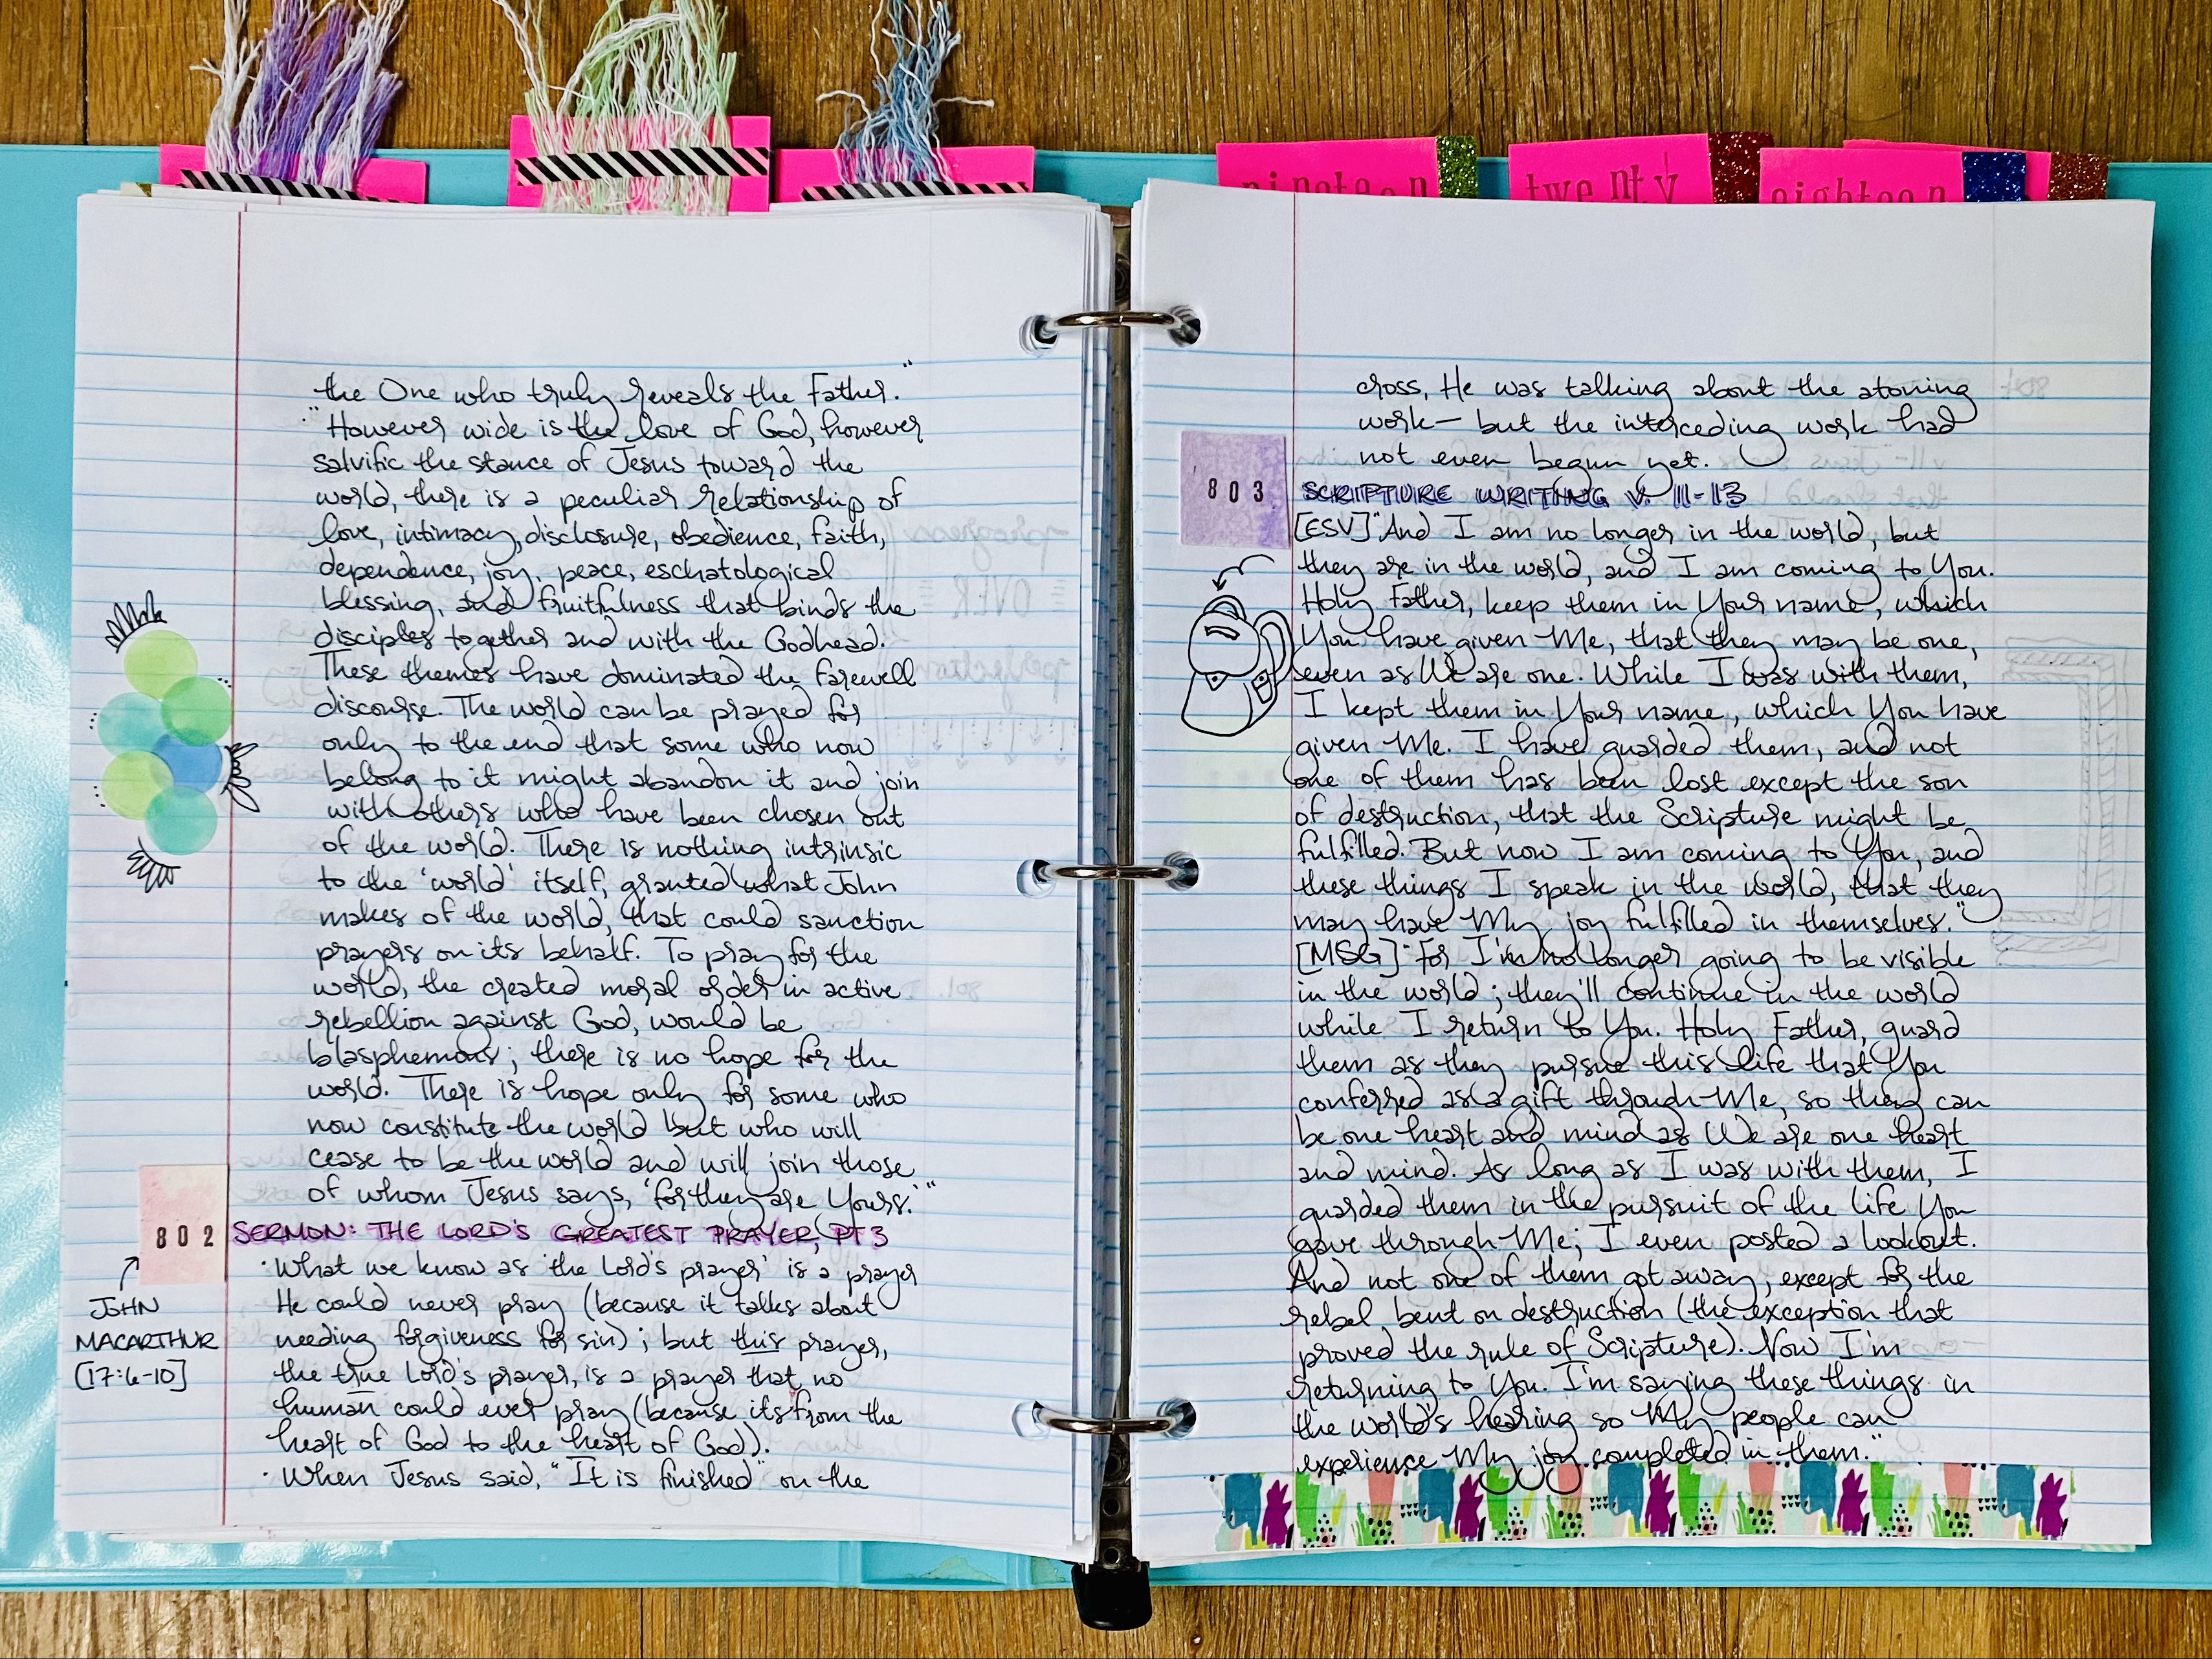 nineteen
twenty
eighteen
the One who truly reveals the Father."
"However wide is the love of God, however
salvific the stance of Jesus toward the
world, there is a peculiar relationship of
love, intimacy, disclosure, obedience, faith,
dependence, joy, peace, eschatological
blessing, and fruitfulness that binds the
disciples together and with the Godhead.
These themes have dominated the farewell
discourse. The world can be prayed for
only to the end that some who now
belong to it might abandon it and join
with others who have been chosen out
of the world. There is nothing intrinsic
to the 'world' itself, granted what John
makes of the world, that could sanction
prayers on its behalf. To pray for the
world, the created moral order in active
rebellion against God, would be
blasphemous; there is no hope for the
world. There is hope only for some who
now constitute the world but who will
cease to be the world and will join those
of whom Jesus says, 'for they are Yours.'"
802 SERMON: THE LORD'S GREATEST PRAYER, PT 3
JOHN
MACARTHUR
[17:6-10]
·What we know as 'the Lord's prayer' is a prayer
He could never pray (because it talks about
needing forgiveness for sin); but this prayer,
the true Lord's prayer, is a prayer that no
human could ever pray (because its from the
heart of God to the heart of God).
·When Jesus said, "It is finished" on the
cross, He was talking about the atoning
work— but the interceding work had
not even begun yet.
803 SCRIPTURE WRITING V. 11-13
[ESV] "And I am no longer in the world, but
they are in the world, and I am coming to You.
Holy Father, keep them in Your name, which
You have given Me, that they may be one,
even as We are one. While I was with them,
I kept them in Your name, which You have
given Me. I have guarded them, and not
one of them has been lost except the son
of destruction, that the Scripture might be
fulfilled. But now I am coming to You, and
these things I speak in the world, that they
may have My joy fulfilled in themselves."
[MSG] "For I'm no longer going to be visible
in the world; they'll continue in the world
while I return to You. Holy Father, guard
them as they pursue this life that You
conferred as a gift through Me, so they can
be one heart and mind as We are one heart
and mind. As long as I was with them, I
guarded them in the pursuit of the life You
gave through Me; I even posted a lookout.
And not one of them got away, except for the
rebel bent on destruction (the exception that
proved the rule of Scripture). Now I'm
returning to You. I'm saying these things in
the world's hearing so My people can
experience My joy completed in them."